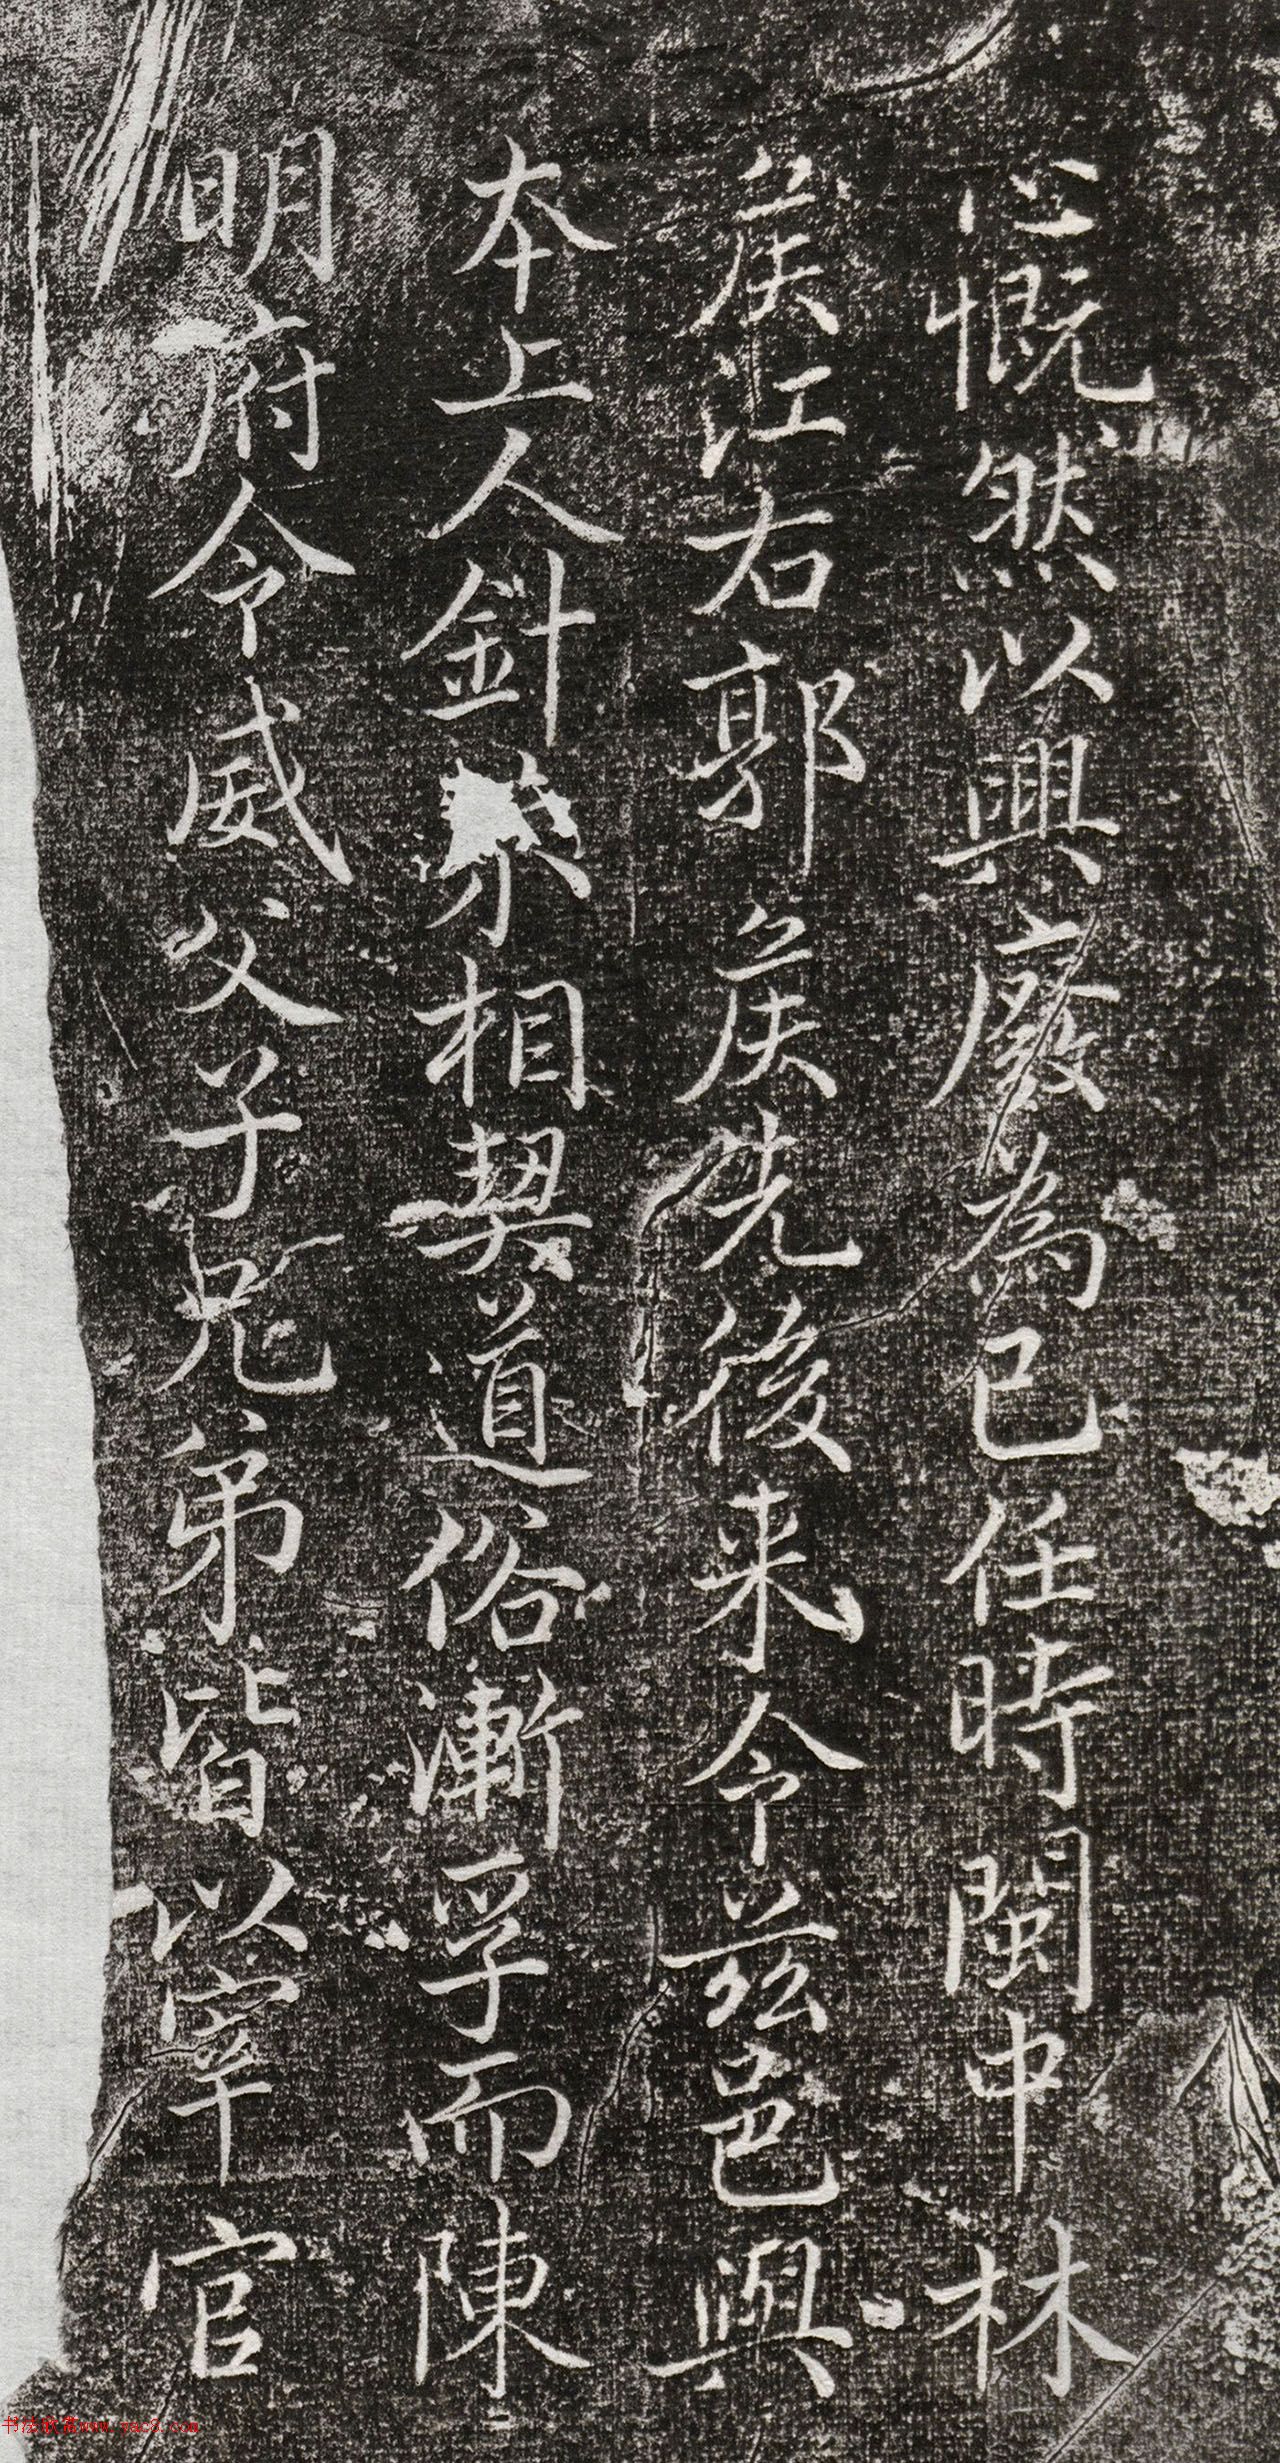 心慨然以興廢為己任時閩中林
矦江右郭矦先後来令茲邑與
本上人針芥相契道俗漸孚而陳
明府令威父子兄弟皆以宰官
书法欣赏www.yac8.com